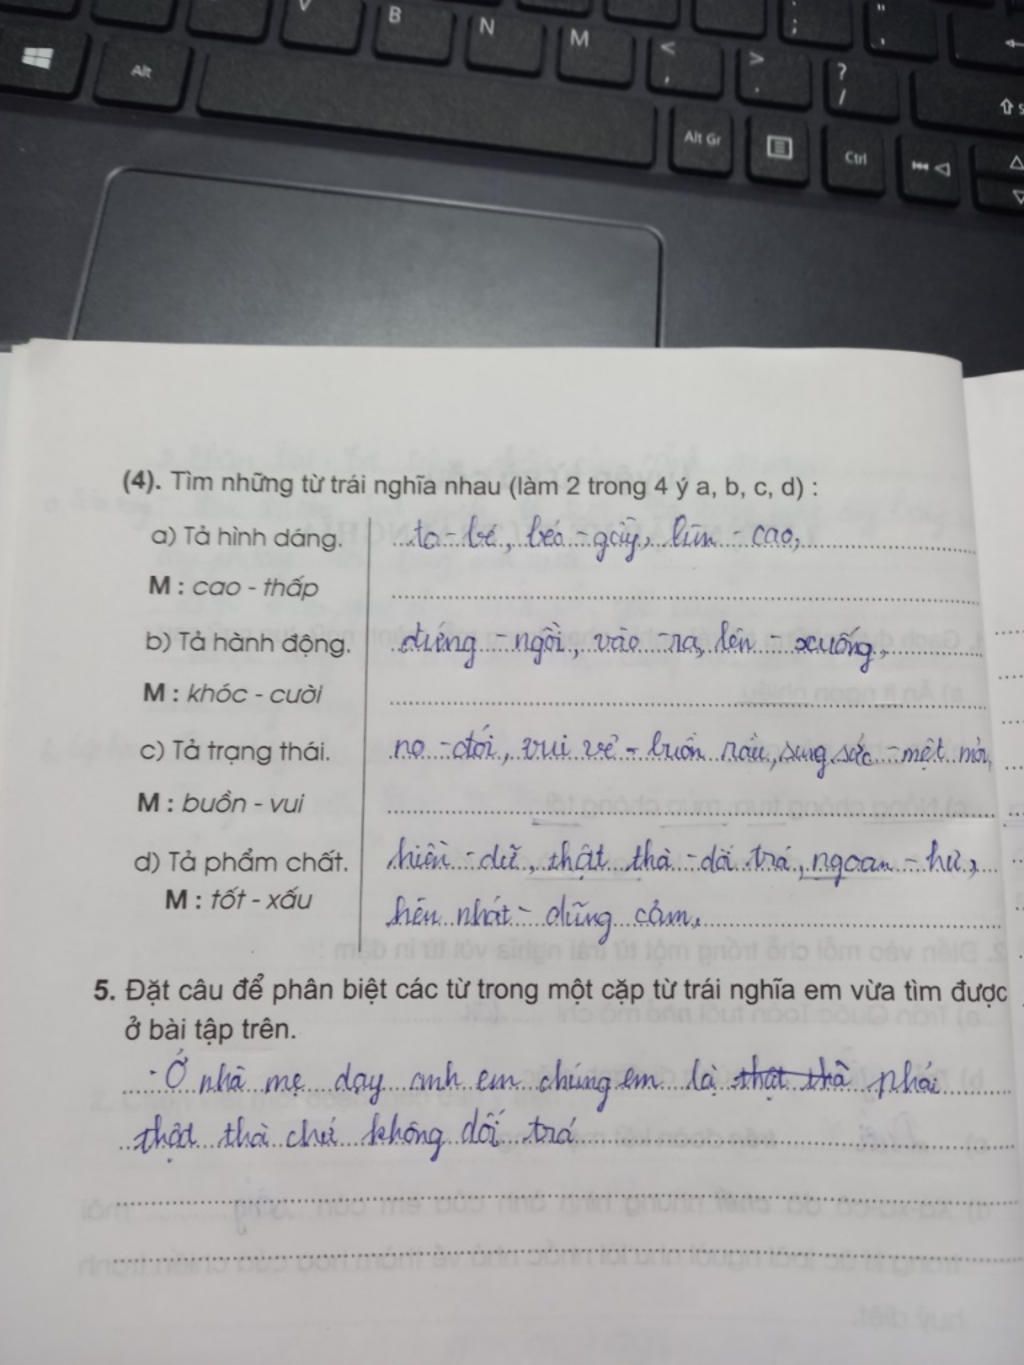 V B N M < , > . : ; ? / " ,
Alt Alt Gr Ctrl
(4). Tìm những từ trái nghĩa nhau (làm 2 trong 4 ý a, b, c, d) :
a) Tả hình dáng. to - bé, béo - gầy, lùn - cao,
M : cao - thấp
b) Tả hành động. đứng - ngồi, vào - ra, lên - xuống,
M : khóc - cười
c) Tả trạng thái. no - đói, vui vẻ - buồn rầu, sung sức - mệt mỏi,
M : buồn - vui
d) Tả phẩm chất. hiền - dữ, thật thà - dối trá, ngoan - hư,
M : tốt - xấu hèn nhát - dũng cảm,
5. Đặt câu để phân biệt các từ trong một cặp từ trái nghĩa em vừa tìm được
ở bài tập trên.
- Ở nhà mẹ dạy anh em chúng em là thật thà phải
thật thà chứ không dối trá